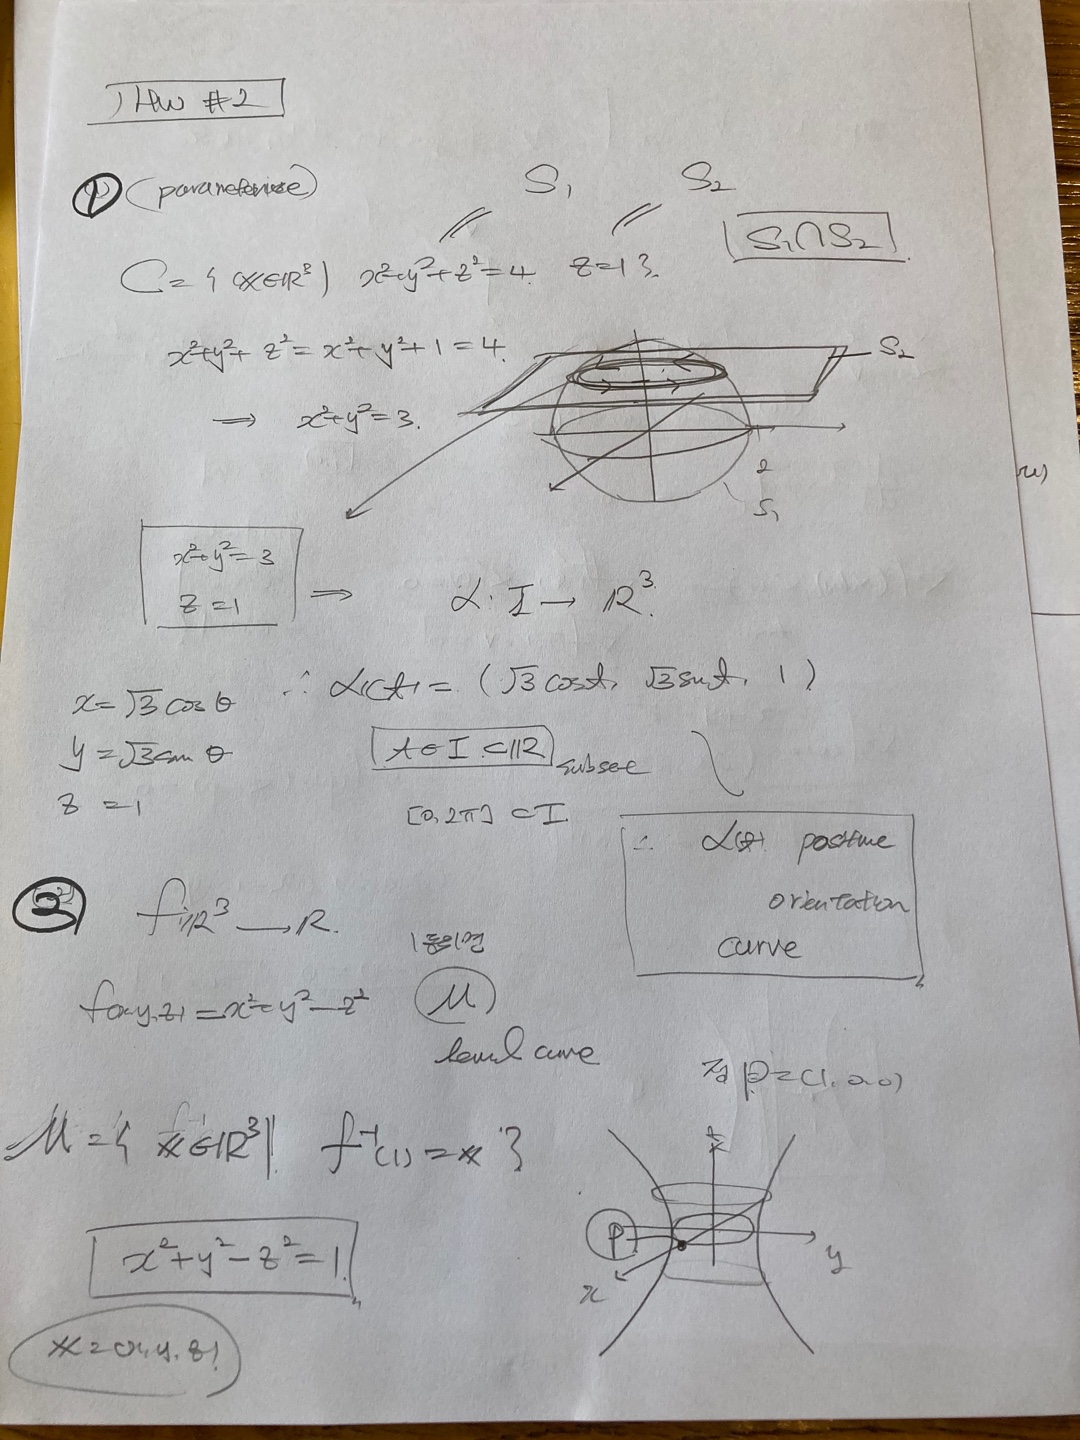 HW #2
① (parameterise)
S₁ S₂
S₁∩S₂
C = { x∈ℝ³ | x²+y²+z²=4, z=1 }.
x²+y²+z² = x²+y²+1 = 4.
⇒ x²+y²=3.
S₂
2
S₁
x²+y²=3
z=1
⇒ α: I → ℝ³.
x=√3 cos θ
y=√3 sin θ
z =1
∴ α(t) = (√3 cos t, √3 sin t, 1)
t ∈ I ⊂ ℝ subset
[0, 2π] ⊂ I.
∴ α(t) positive
orientation
curve
② f: ℝ³ → ℝ.
f(x,y,z) = x²+y²−z²
M
level curve
M = { x∈ℝ³ | f⁻¹(1) = x }
x²+y²−z²=1.
x=(x,y,z)
점 p=(1,0,0)
z
P
y
x